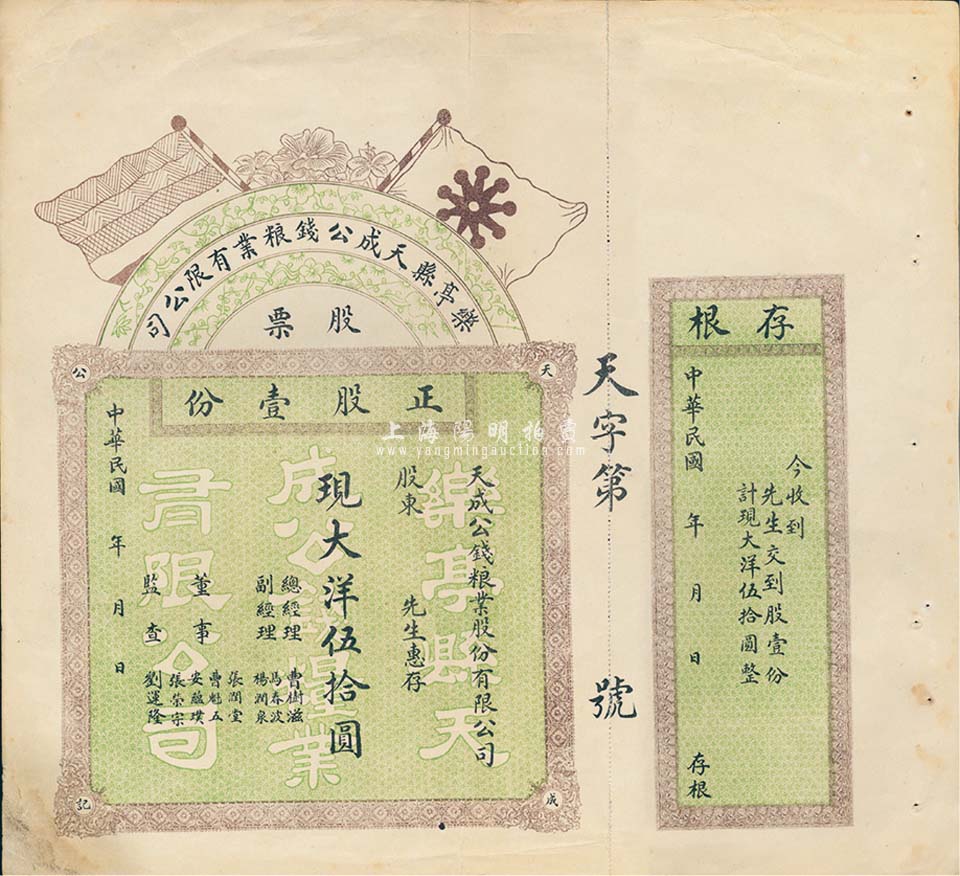 樂亭縣天成公錢粮業有限公司
股票
正股壹份
天
成
公
記
天成公錢粮業股份有限公司
股東 先生惠存
現大洋伍拾圓
總經理 曹樹滋
副經理 馬春波
楊潤泉
董事 張潤堂
曹魁五
安蘊璞
張榮宗
監查 劉運隆
中華民國 年 月 日
樂亭縣天
成公錢糧業
有限公司
天字第 號
存根
今收到
先生交到股壹份
計現大洋伍拾圓整
中華民國 年 月 日 存根
上海陽明拍賣
www.yangmingauction.com